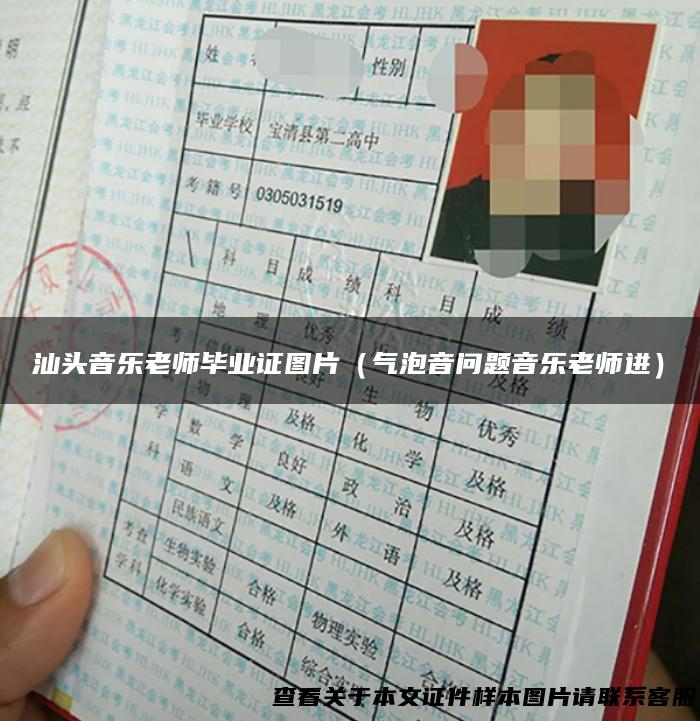 姓
性别
毕业学校 宝清县第二高中
考籍号 0305031519
科目 成绩 科目 成绩
地理 优秀
汕头音乐老师毕业证图片（气泡音问题音乐老师进）
物理 及格 生物 优秀
数学 良好 化学 及格
语文 及格 政治 及格
民族语文 外语 及格
考查学科 生物实验 合格 物理实验 合格
化学实验 合格 综合实
查看关于本文证件样本图片请联系客服